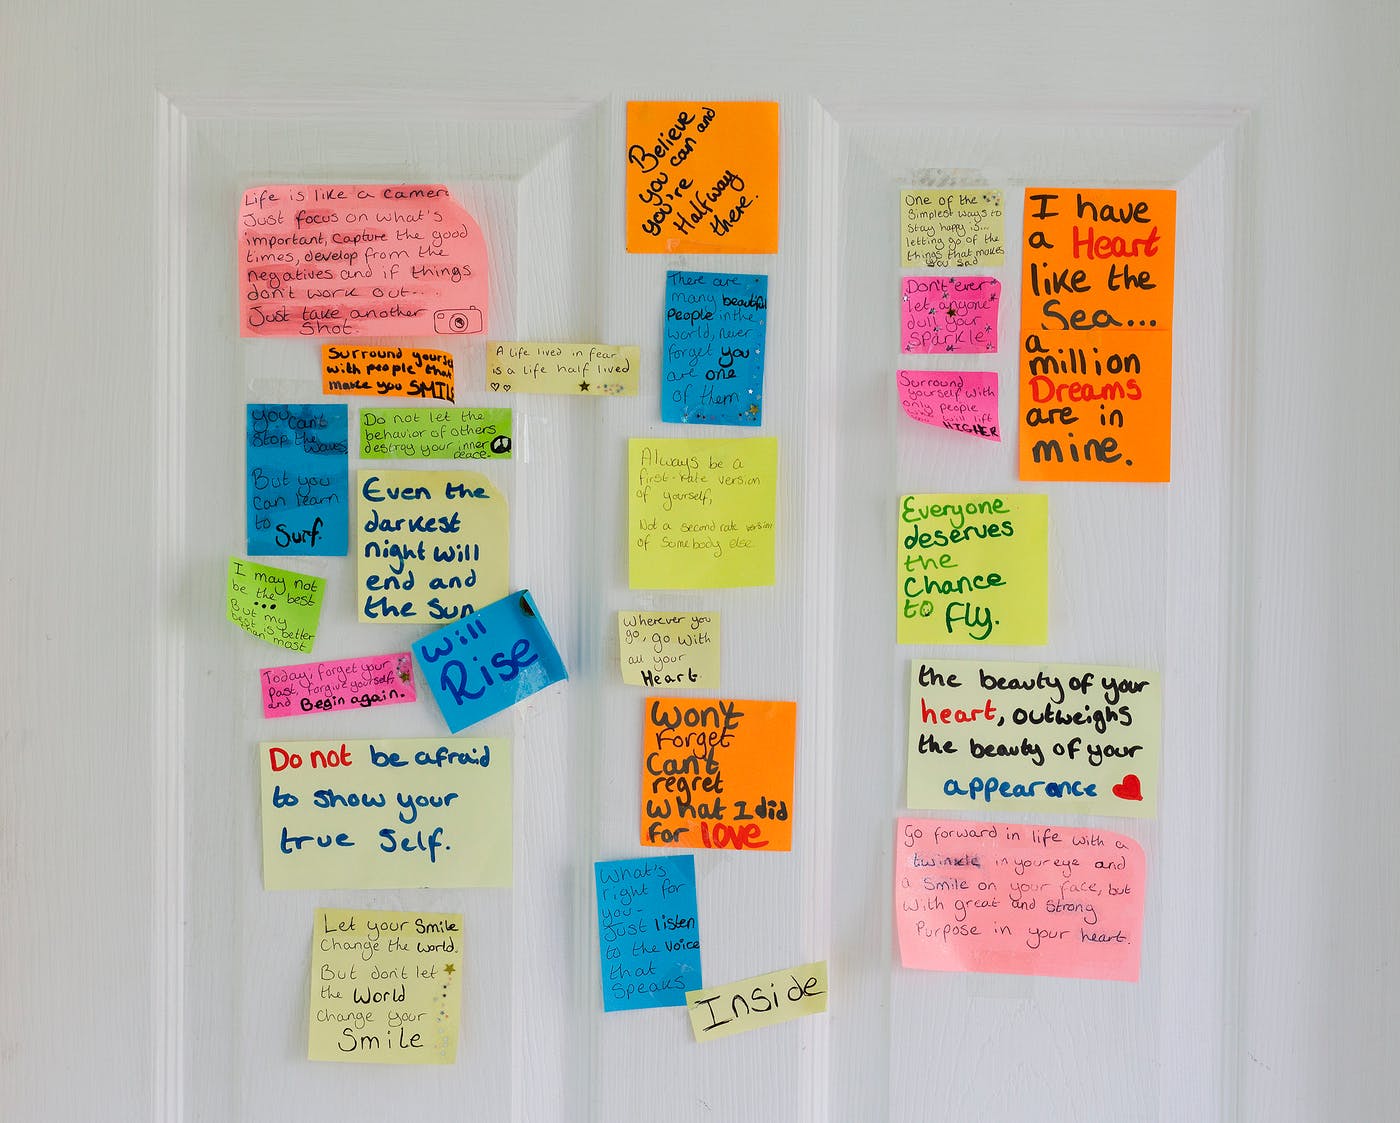 Life is like a camera
Just focus on what's
important, capture the good
times, develop from the
negatives and if things
don't work out....
Just take another
Shot.
Surround yourself
with people that
make you SMILE
A life lived in fear
is a life half lived
You can't
Stop the waves,
But you
can learn
to
Surf.
Do not let the
behavior of others
destroy your inner
peace.
Even the
darkest
night will
end and
the Sun
will
Rise
I may not
be the best
...
But my
best is better
than most
Today, forget your
Past, forgive yourself,
and Begin again.
Do not be afraid
to show your
true Self.
Let your Smile
Change the world.
But don't let
the World
change your
Smile
Believe
you can and
you're
Halfway
there.
There are
many beautiful
People in the
world, never
forget you
are one
of them
Always be a
first-rate version
of yourself,
Not a second rate version
of Somebody else
Wherever you
go, go with
all your
Heart.
Won't
Forget
Can't
regret
What I did
For love
What's
right for
you-
Just listen
to the voice
that
Speaks
Inside
One of the
Simplest ways to
Stay happy is...
letting go of the
things that makes
you sad
Don't ever
let anyone
dull your
Sparkle
Surround
yourself with
only people
who will lift
HIGHER
I have
a Heart
like the
Sea...
a
million
Dreams
are in
mine.
Everyone
deserves
the
Chance
to Fly.
the beauty of your
heart, outweighs
the beauty of your
appearance
Go forward in life with a
twinkle in your eye and
a Smile on your face, but
with great and strong
Purpose in your heart.